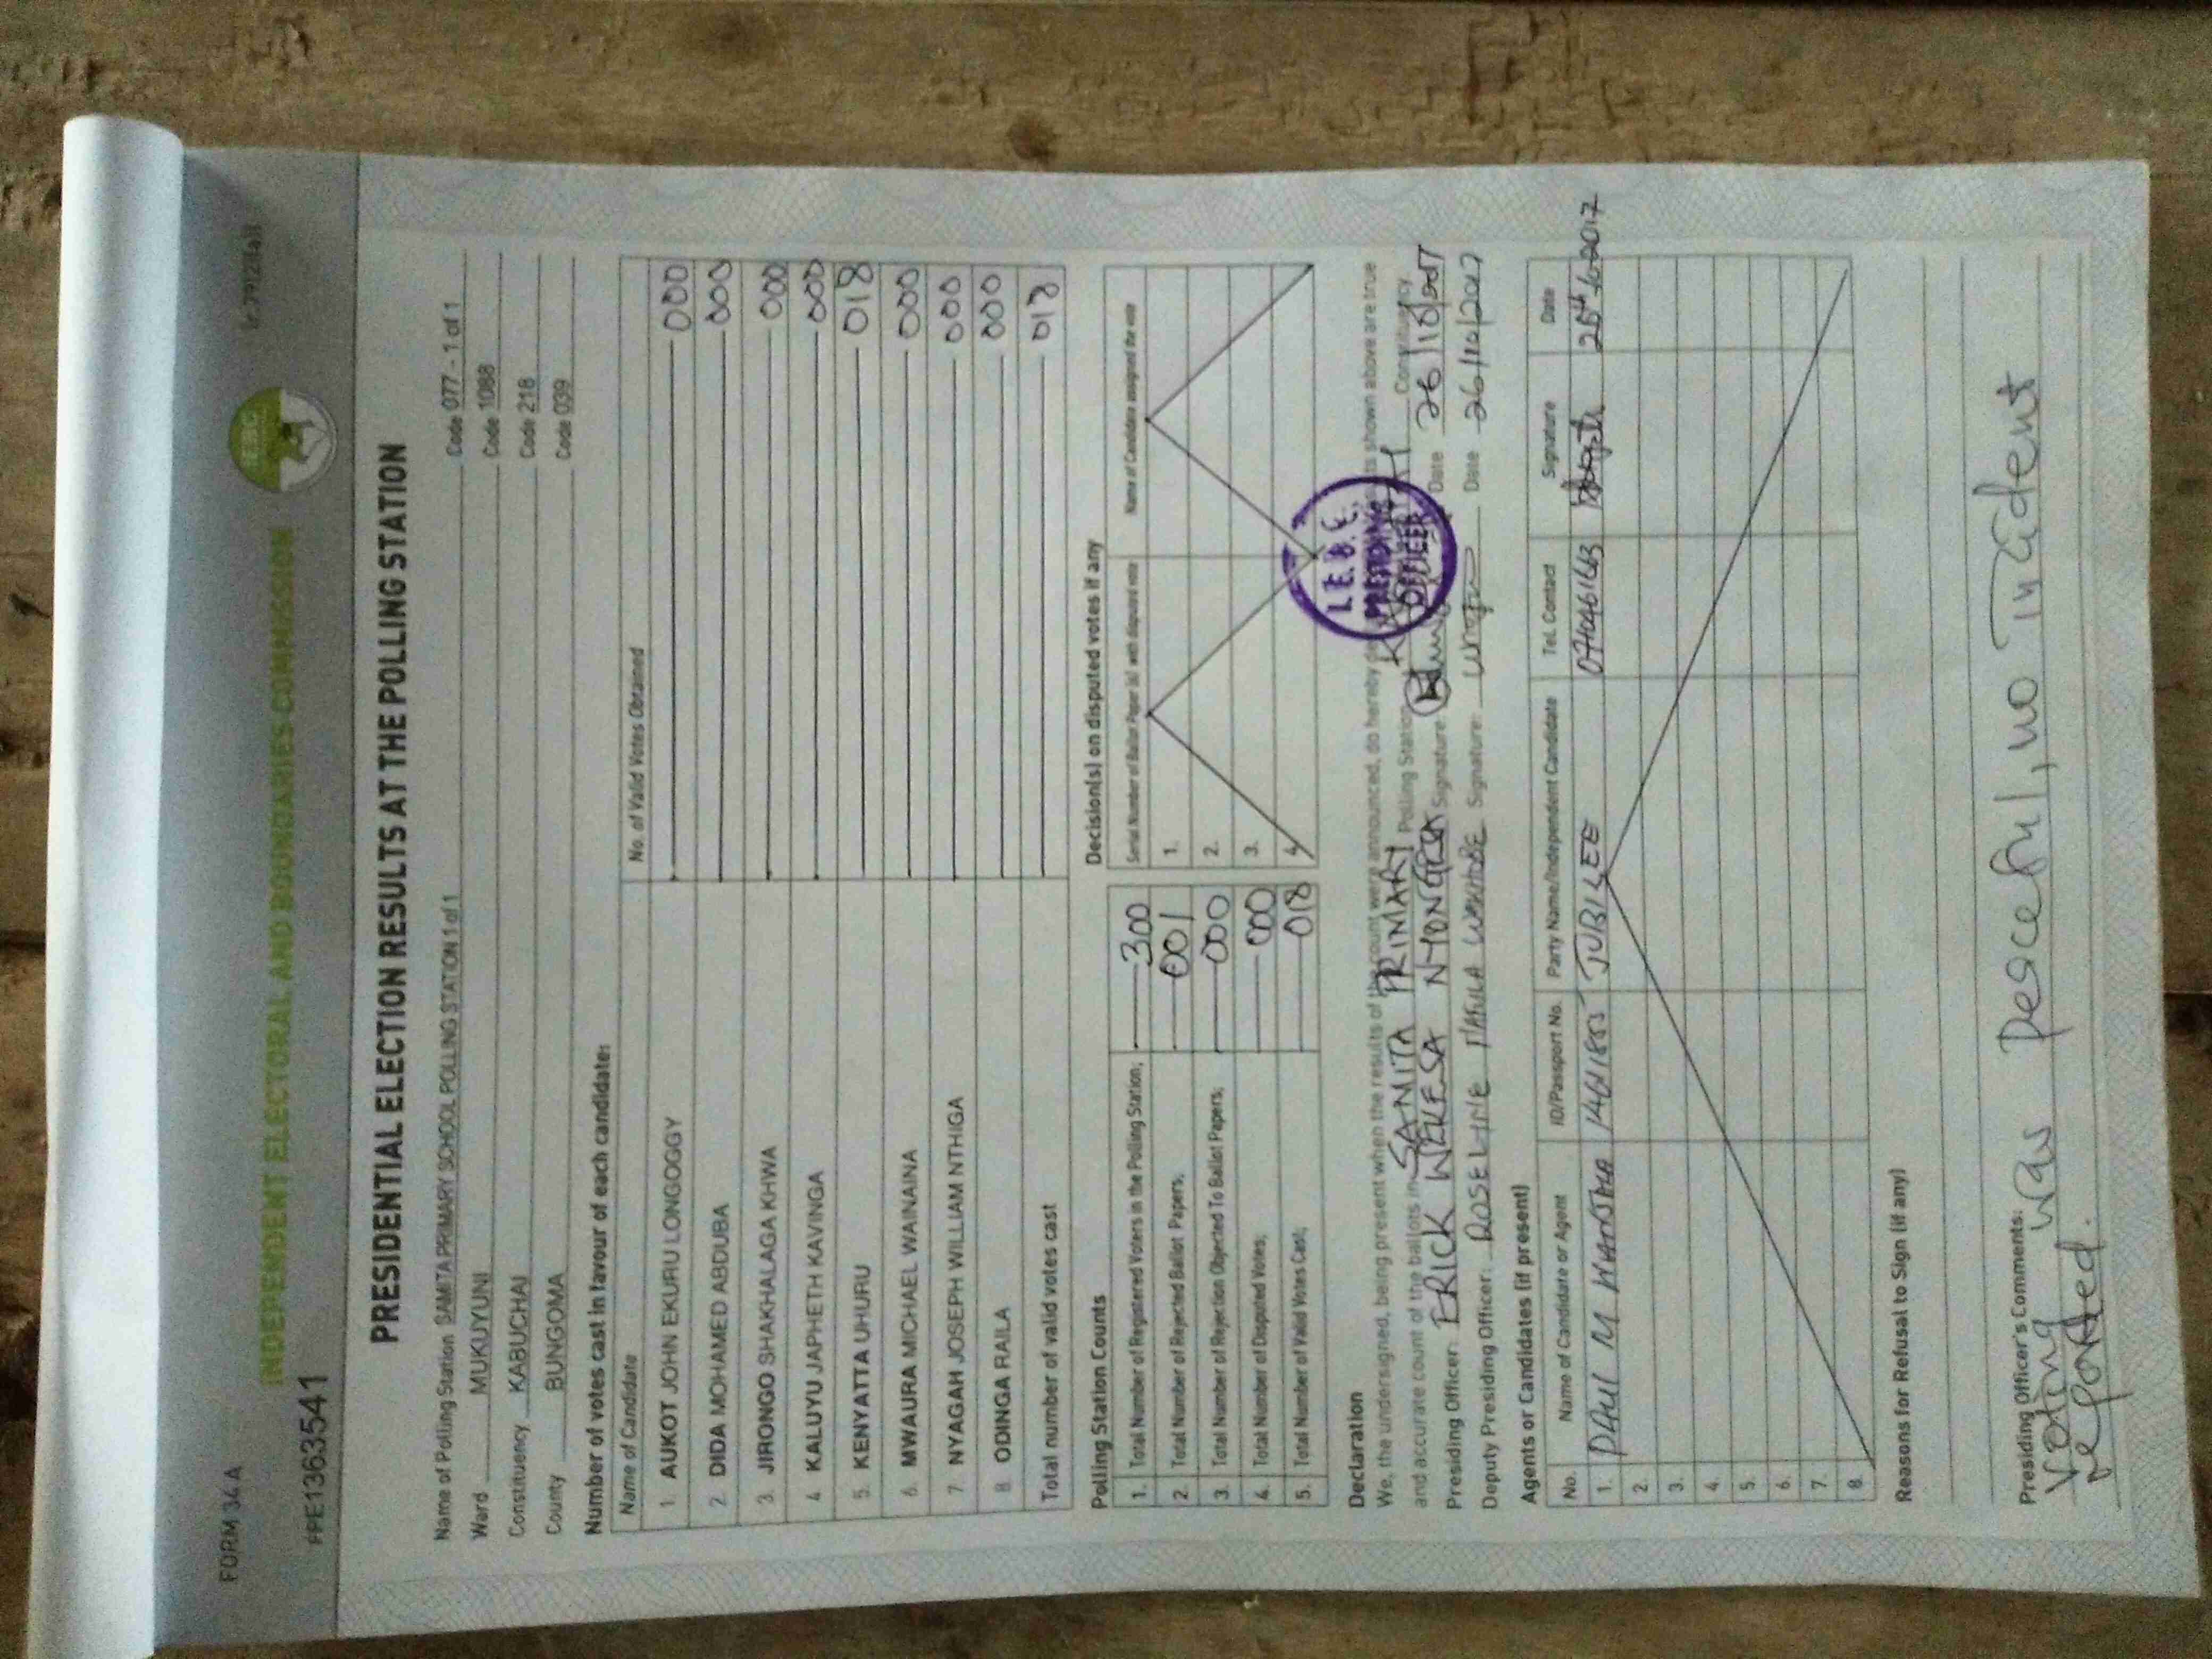 FORM 34A
INDEPENDENT ELECTORAL AND BOUNDARIES COMMISSION
PRE1363541
PRESIDENTIAL ELECTION RESULTS AT THE POLLING STATION
Name of Polling Station SAMITA PRIMARY SCHOOL POLLING STATION 1 of 1 Code 077 - 1 of 1
Ward MUKUYUNI Code 1088
Constituency KABUCHAI Code 218
County BUNGOMA Code 039
Number of votes cast in favour of each candidate:
Name of Candidate No. of Valid Votes Obtained
1. AUKOT JOHN EKURU LONGOGGY 000
2. DIDA MOHAMED ABDUBA 000
3. JIRONGO SHAKHALAGA KHWA 000
4. KALUYU JAPHETH KAVINGA 000
5. KENYATTA UHURU 018
6. MWAURA MICHAEL WAINAINA 000
7. NYAGAH JOSEPH WILLIAM NTHIGA 000
8. ODINGA RAILA 000
Total number of valid votes cast 018
Polling Station Counts
1. Total Number of Registered Voters in the Polling Station; 300
2. Total Number of Rejected Ballot Papers; 001
3. Total Number of Rejection Objected To Ballot Papers; 000
4. Total Number of Disputed Votes; 000
5. Total Number of Valid Votes Cast; 018
Decision(s) on disputed votes if any
Serial Number of Ballot Paper (s) with disputed vote Name of Candidate assigned the vote
1.
2.
3.
4.
Declaration
We, the undersigned, being present when the results of the count were announced, do hereby shown above are true
and accurate count of the ballots in SAMITA PRIMARY Polling Station Constituency
Presiding Officer: ERICK WEKESA Signature: Date 26/10/2017
Deputy Presiding Officer: ROSELINE Signature: Date 26/10/2017
I.E.B.C.
PRESIDING
OFFICER
Agents or Candidates (if present)
No. Name of Candidate or Agent ID/Passport No. Party Name/Independent Candidate Tel. Contact Signature Date
1. PAUL M JUBILEE
2.
3.
4.
5.
6.
7.
8.
Reasons for Refusal to Sign (if any)
Presiding Officer's Comments:
Voting was peaceful, no incident
reported.